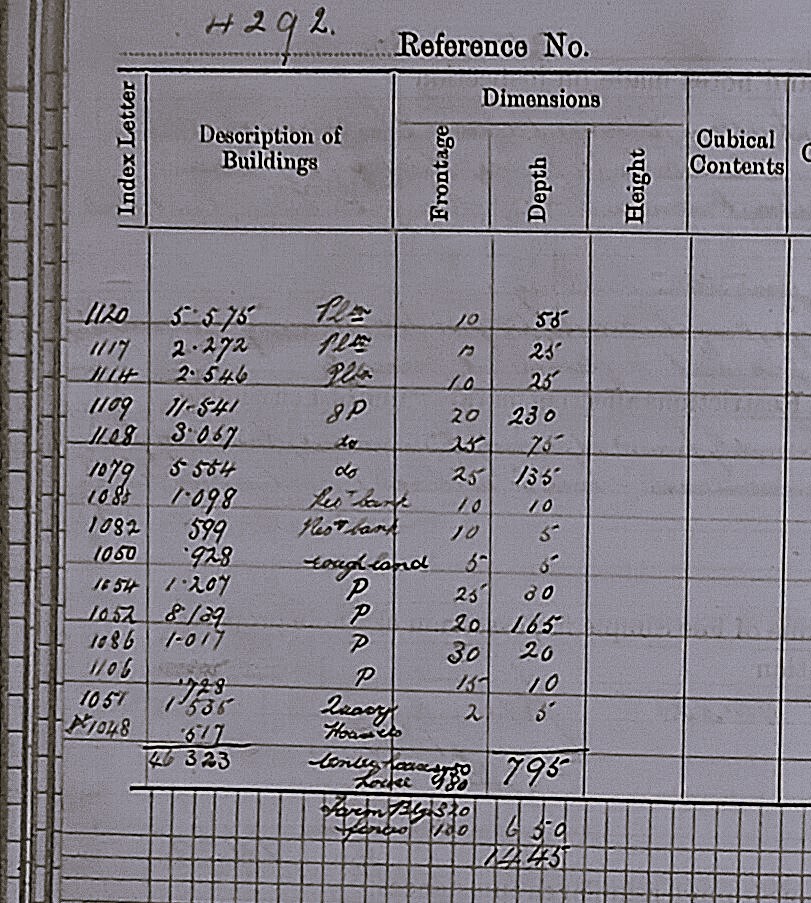 4292.
Reference No.
Index Letter
Description of Buildings
Dimensions
Frontage
Depth
Height
Cubical Contents
1120 5.575 Pltn 10 55
1117 2.272 Pltn 25
1114 2.546 Pltn 10 25
1109 11.541 gP 20 230
1108 3.067 do 25 75
1079 5.554 do 25 135
1.098 Res^r bank 10 10
1082 .599 Res^r bank 10 5
1050 .928 rough land 5 5
1054 1.207 P 25 30
1052 8.139 P 20 165
1086 1.017 P 30 20
1106 .728 P 15 10
1051 1.535 Quarry 2 5
pt 1048 .517 Houses
46.323 795
house
Farm Bldgs 320
fences 100 650
1445